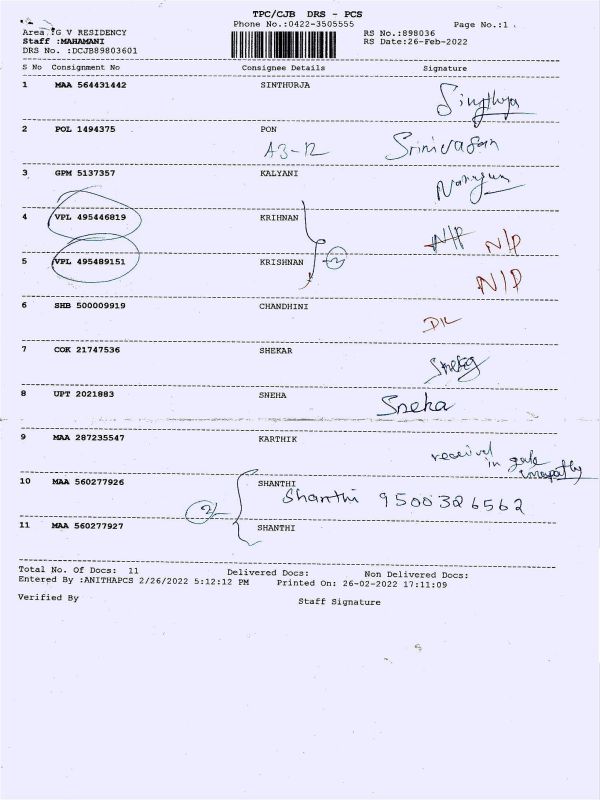 TPC/CJB DRS - PCS
Area :G V RESIDENCY Phone No.:0422-3505555 Page No.:1
Staff :MAHAMANI RS No.:898036
DRS No. :DCJB89803601 RS Date:26-Feb-2022
S No Consignment No Consignee Details Signature
1 MAA 564431442 SINTHURJA
2 POL 1494375 PON
A3-12 Srinivasan
3 GPM 5137357 KALYANI
4 VPL 495446819 KRIHNAN
N/P N/P
5 VPL 495489151 KRISHNAN 2
N/P
6 SHB 500009919 CHANDHINI
D/L
7 COK 21747536 SHEKAR
8 UPT 2021883 SNEHA Sneha
9 MAA 287235547 KARTHIK
received
in gate
10 MAA 560277926 SHANTHI
2 Shanthi 9500326562
11 MAA 560277927 SHANTHI
Total No. Of Docs: 11 Delivered Docs: Non Delivered Docs:
Entered By :ANITHAPCS 2/26/2022 5:12:12 PM Printed On: 26-02-2022 17:11:09
Verified By Staff Signature